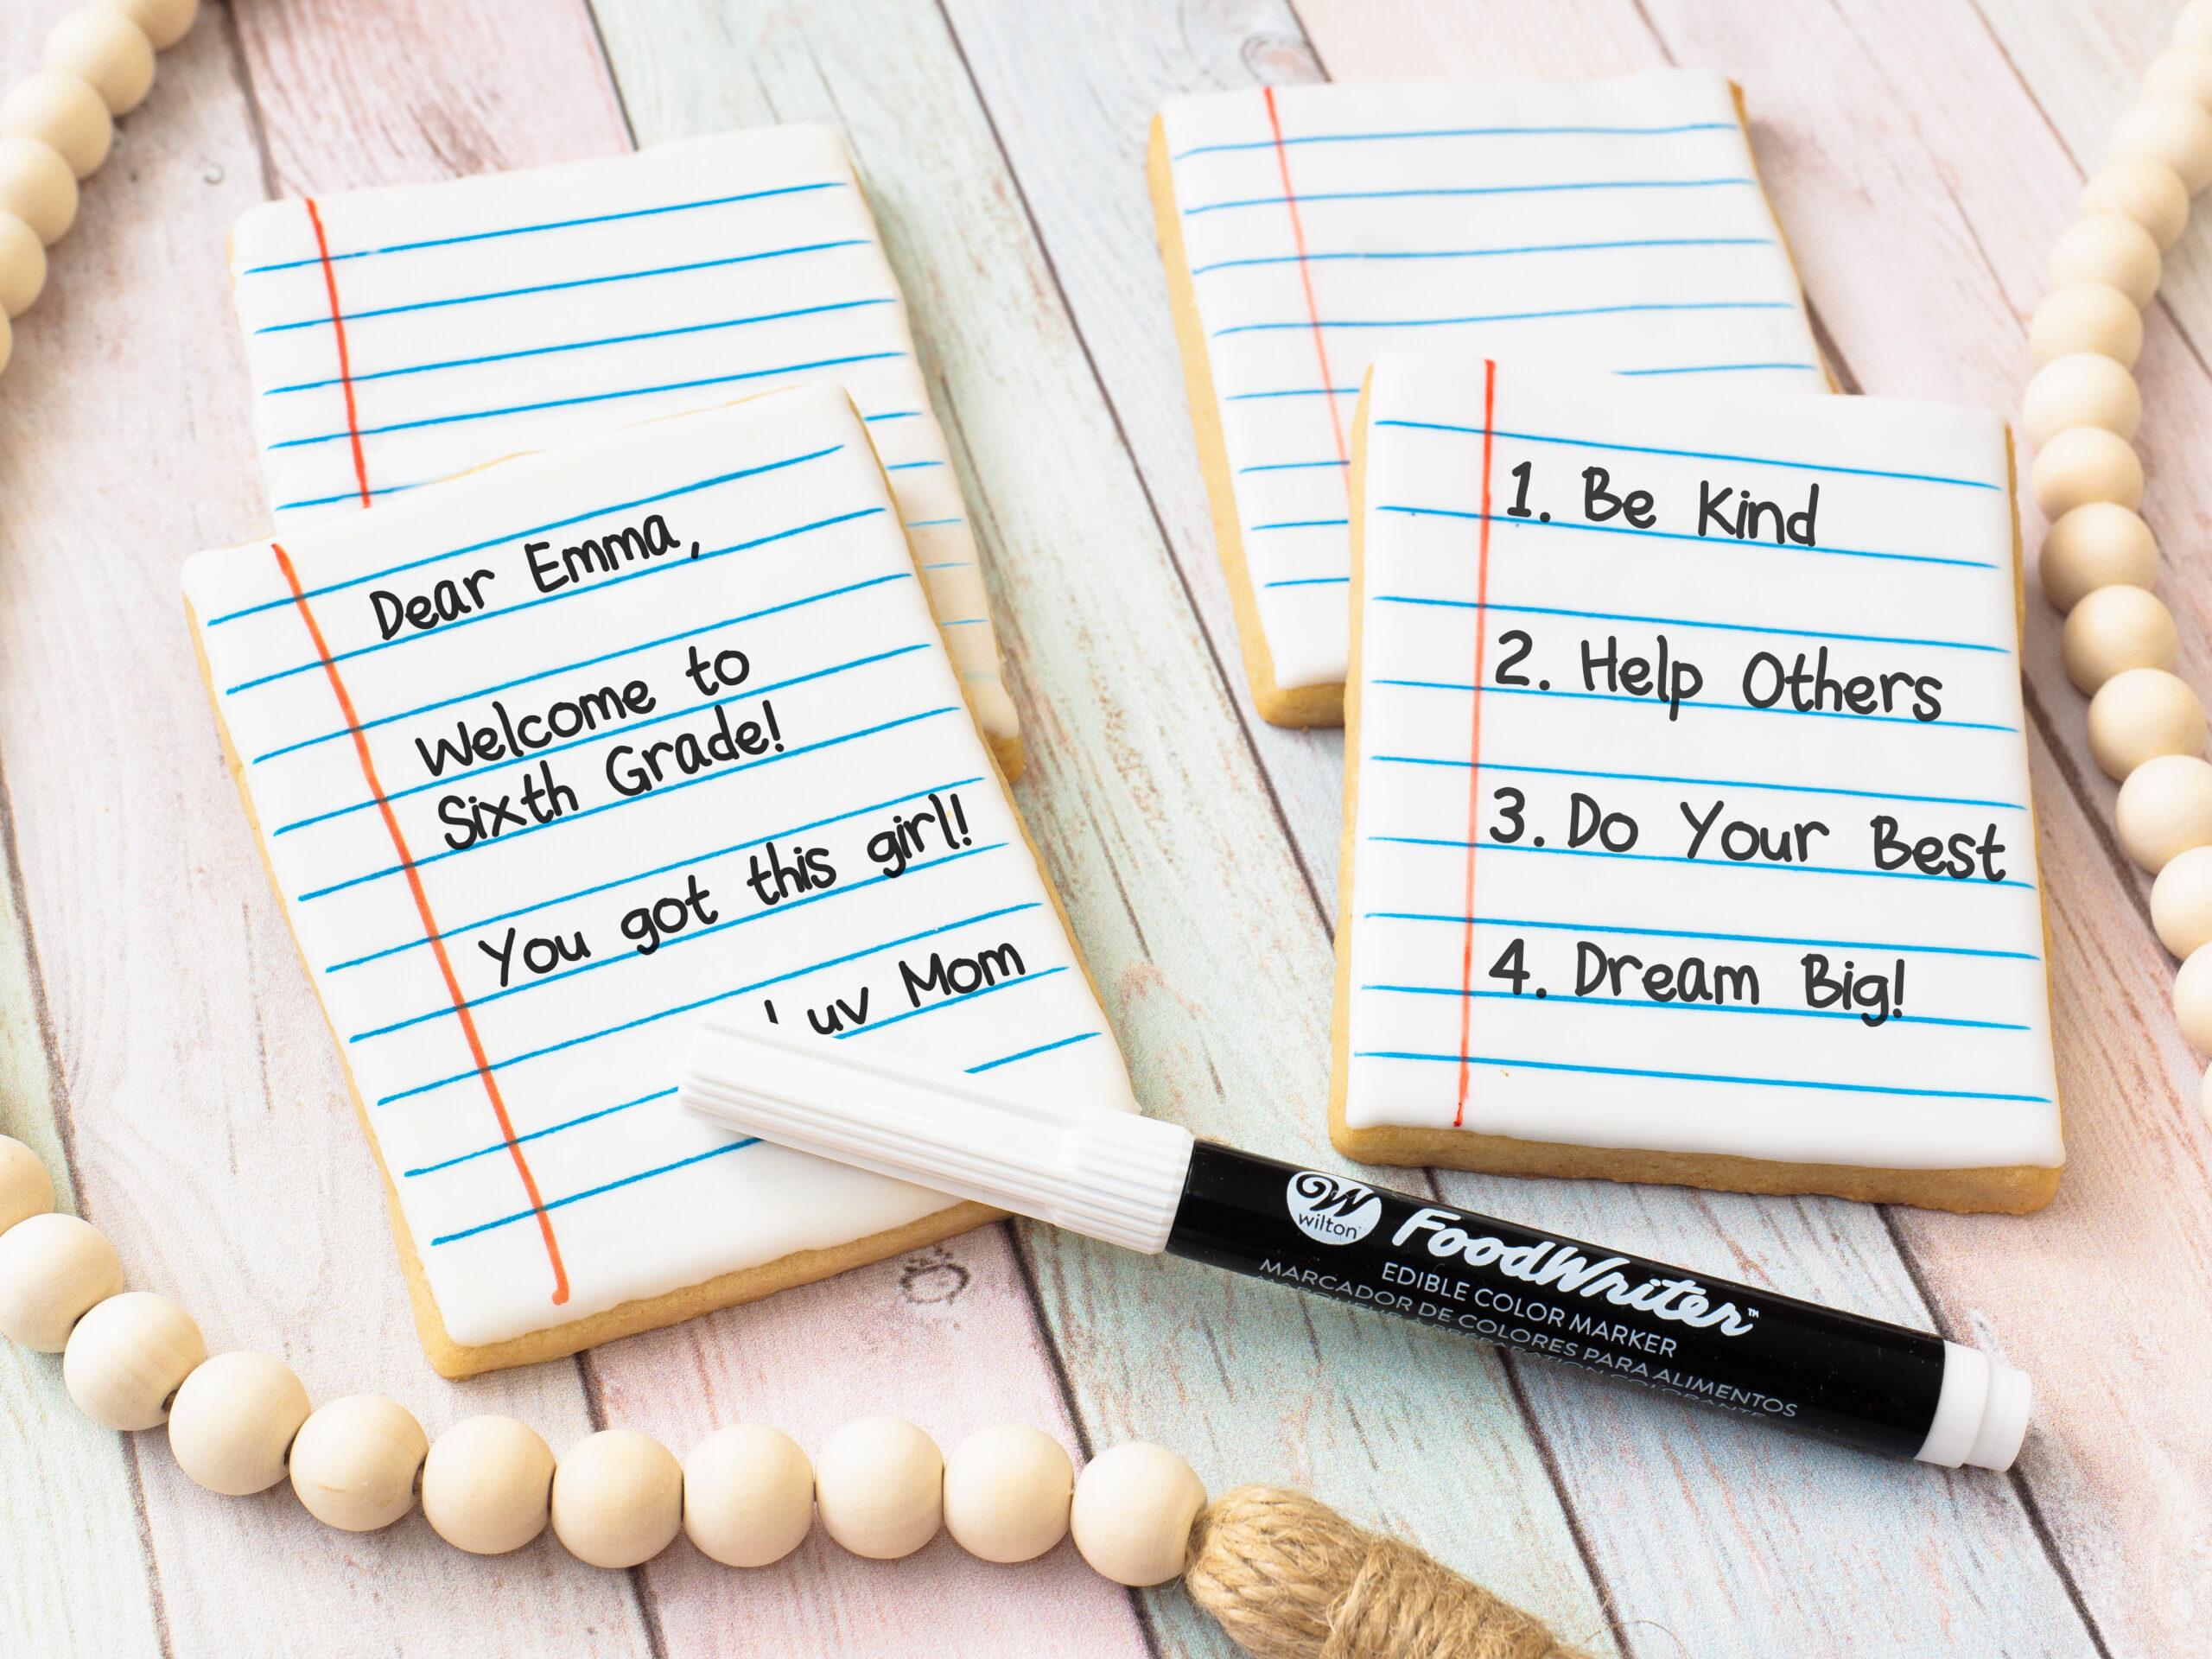 Dear Emma,
Welcome to
Sixth Grade!
You got this girl!
Luv Mom
1. Be Kind
2. Help Others
3. Do Your Best
4. Dream Big!
W
wilton
FoodWriter™
EDIBLE COLOR MARKER
MARCADOR DE COLORES PARA ALIMENTOS